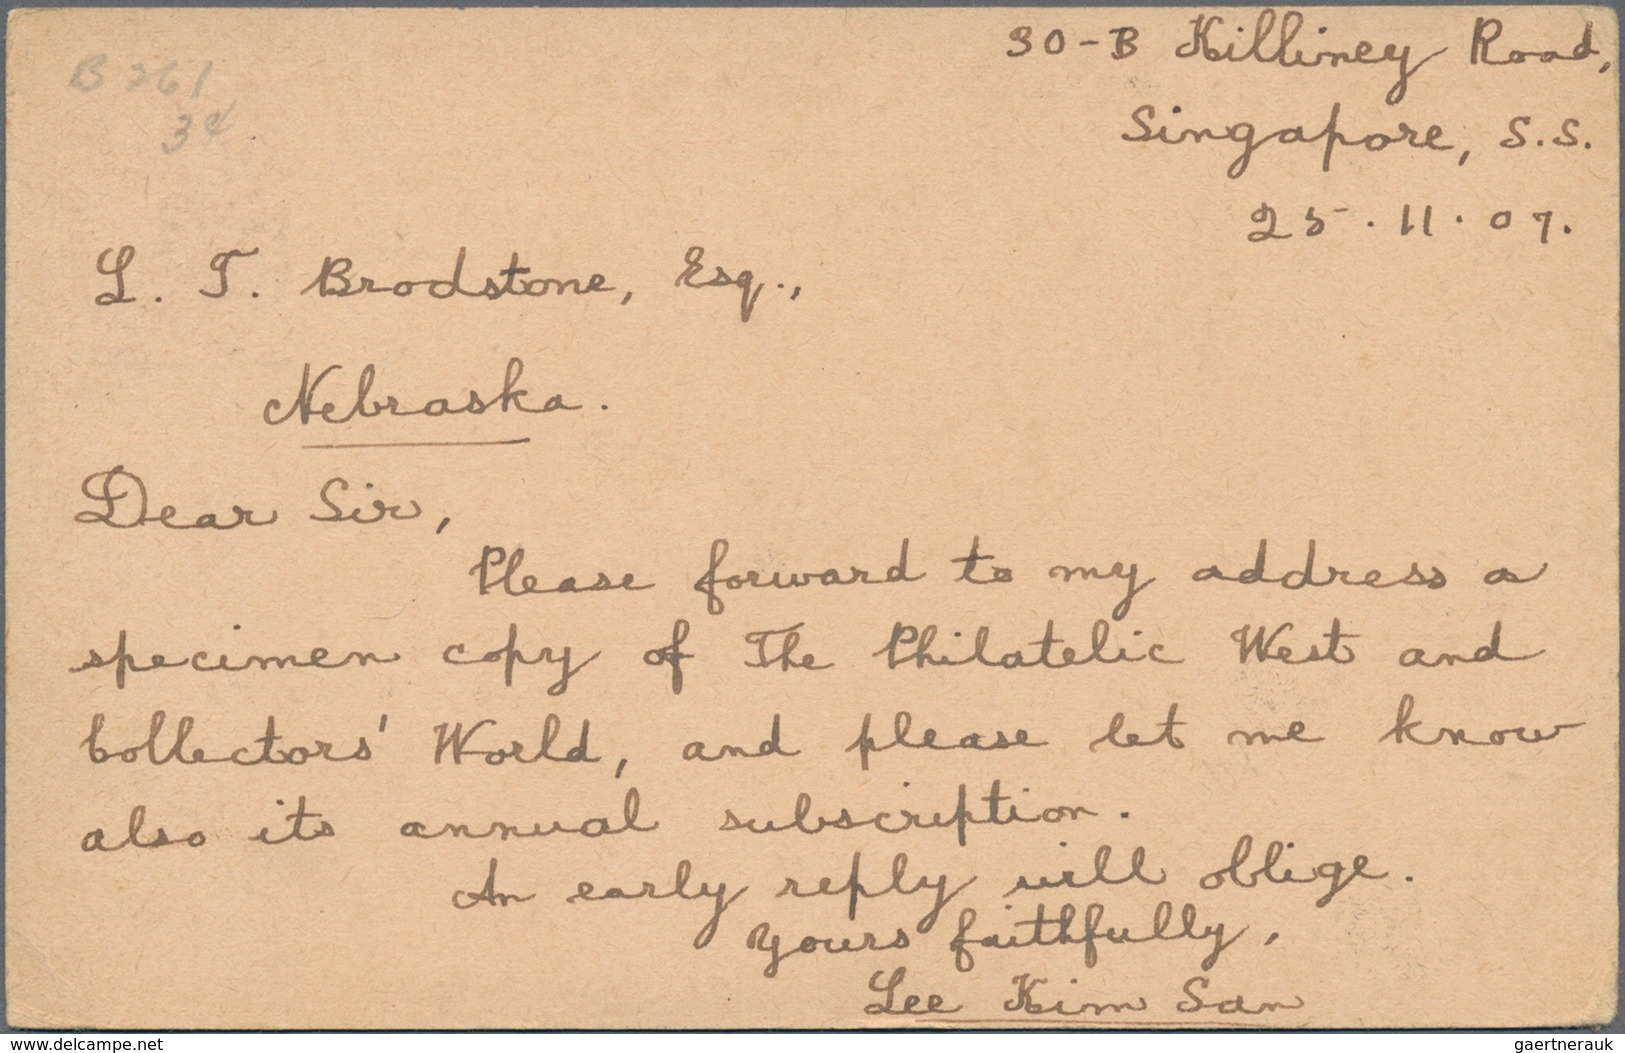 30-B Killiney Road,
Singapore, S.S.
25.11.07.
B 261
3¢
L. T. Brodstone, Esq.,
Nebraska.
Dear Sir,
Please forward to my address a
specimen copy of The Philatelic West and
Collectors' World, and please let me know
also its annual subscription.
An early reply will oblige.
Yours faithfully,
Lee Kim San
www.delcampe.net
gaertnerauk